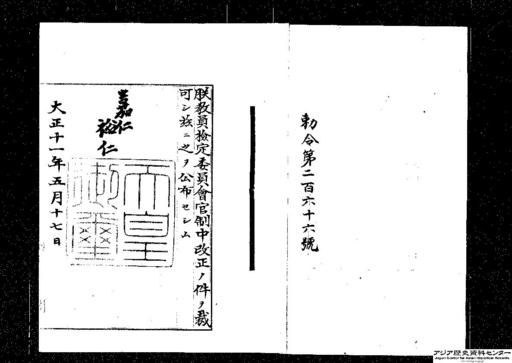 勅令第二百六十六號
朕教員檢定委員會官制中改正ノ件ヲ裁
可シ茲ニ之ヲ公布セシム
嘉仁
裕仁
天皇
御璽
大正十一年五月十七日
アジア歴史資料センター
Japan Center for Asian Historical Records